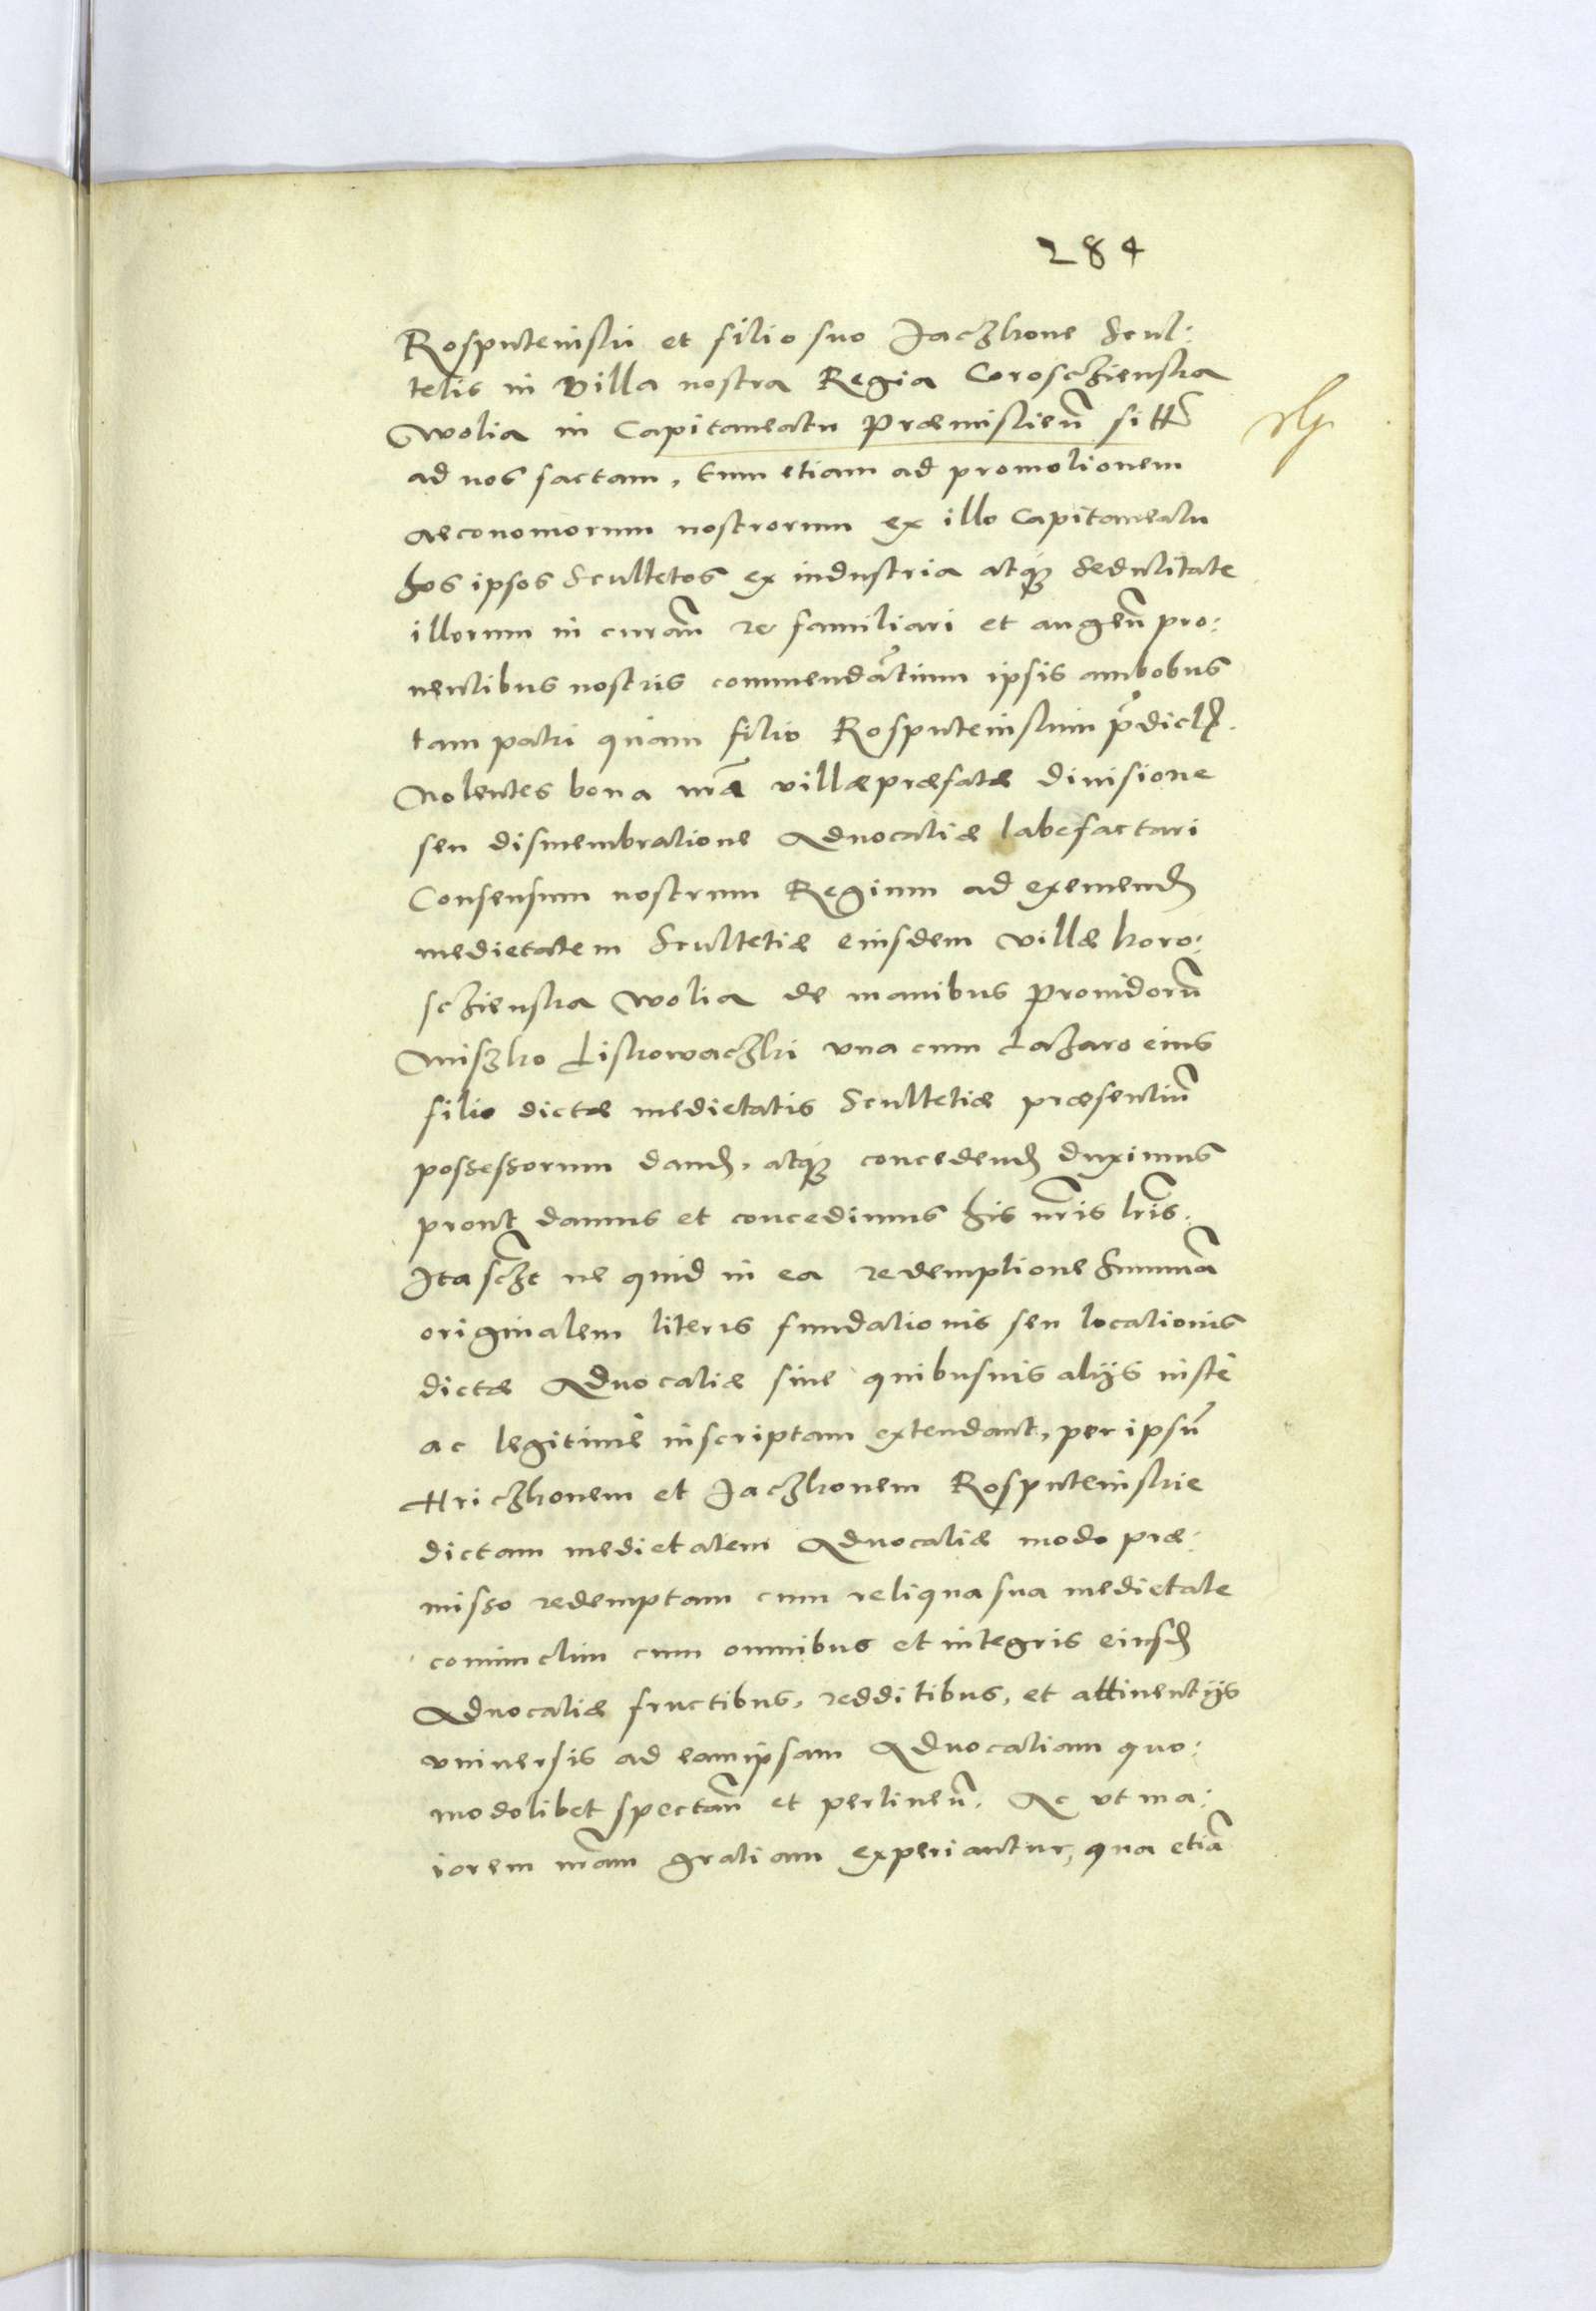 284
Rosputeinskii et filio suo Jaczkone Scul:
tetis in Villa nostra Regia Coroschienska
Wolia in Capitaneatu Præmislien̄ sitt̄
ad nos factam, tum etiam ad promotionem
aeconomorum nostrorum ex illo Capitaneatu
hos ipsos Scultetos ex industria atq̨ sedulitate
illorum in curan̄ re familiari et augen̄ pro:
uentibus nostris commendantium ipsis ambobus
tam patri quam filio Rosputeinskim p̄dict̄.
Nolentes bona nr̄a villæ præfatæ diuisione
seu dismembratione Aduocatiæ labefactari
Consensum nostrum Regium ad exemend̄
medietatem Scultetiæ eiusdem villæ koro:
schienska wolia de manibus Prouidorū
Miszko Liskowaczki vna cum Lazaro eius
filio dictæ medietatis Scultetiæ præsentiū
possessorum dand̄, atq̨ concedend̄ duximus
prout damus et concedimus his nr̄is lr̄is.
Ita sczt ne quid in ea redemptione summā
originalem literis fundationis seu locationis
dictæ Aduocatiæ siue quibusuis alijs iustè
ac legitimè inscriptam extendant, per ipsū
Hriczkonem et Jaczkonem Rosputeinskie
dictam medietatem Aduocatiæ modo præ:
misso redemptam cum reliqua sua medietate
coniunctim cum omnibus et integris eiusd̄
Aduocatiæ fructibus, redditibus, et attinentijs
vniuersis ad eam ipsam Aduocatiam quo:
modolibet spectan̄ et pertinen̄. Ac vt ma:
iorem nr̄am gratiam experiantur, qua etiā